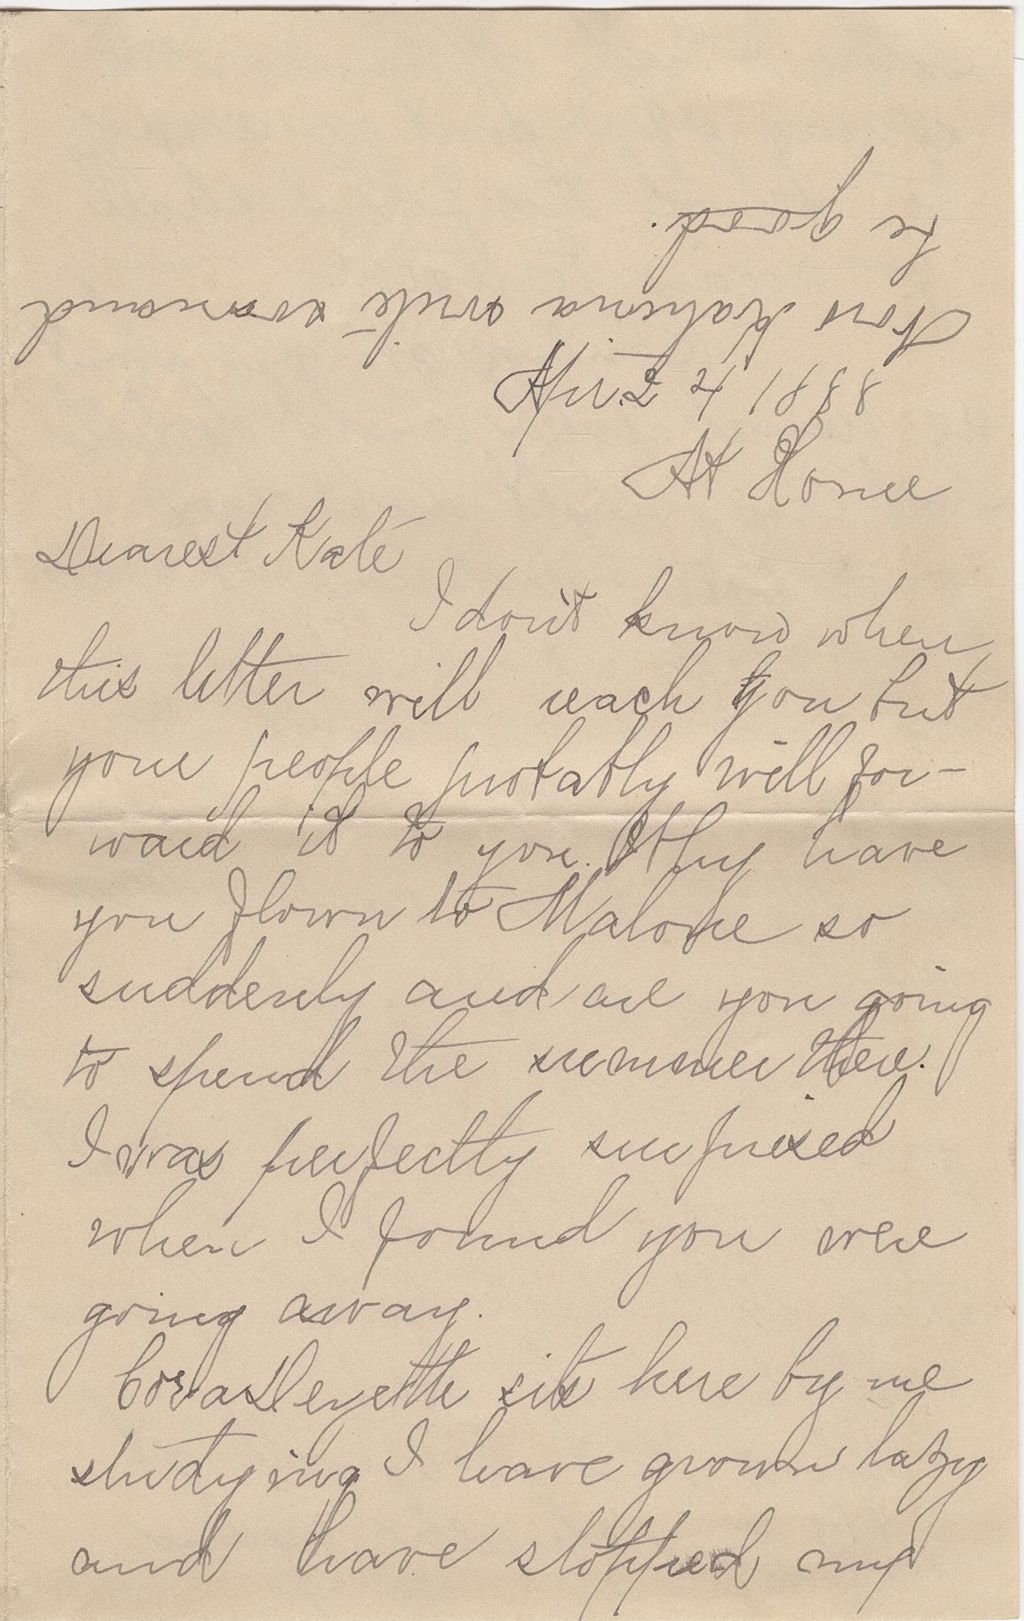 Apr. 24 1888
At Home
Dearest Kate
I don't know when
this letter will reach you but
your people probably will for-
ward it to you. Why have
you flown to Malone so
suddenly and are you going
to spend the summer there.
I was perfectly surprised
when I found you were
going away.
Cora Deyette sits here by me
studying I have grown lazy
and have stopped my
Now Katrina write soon and
be good.